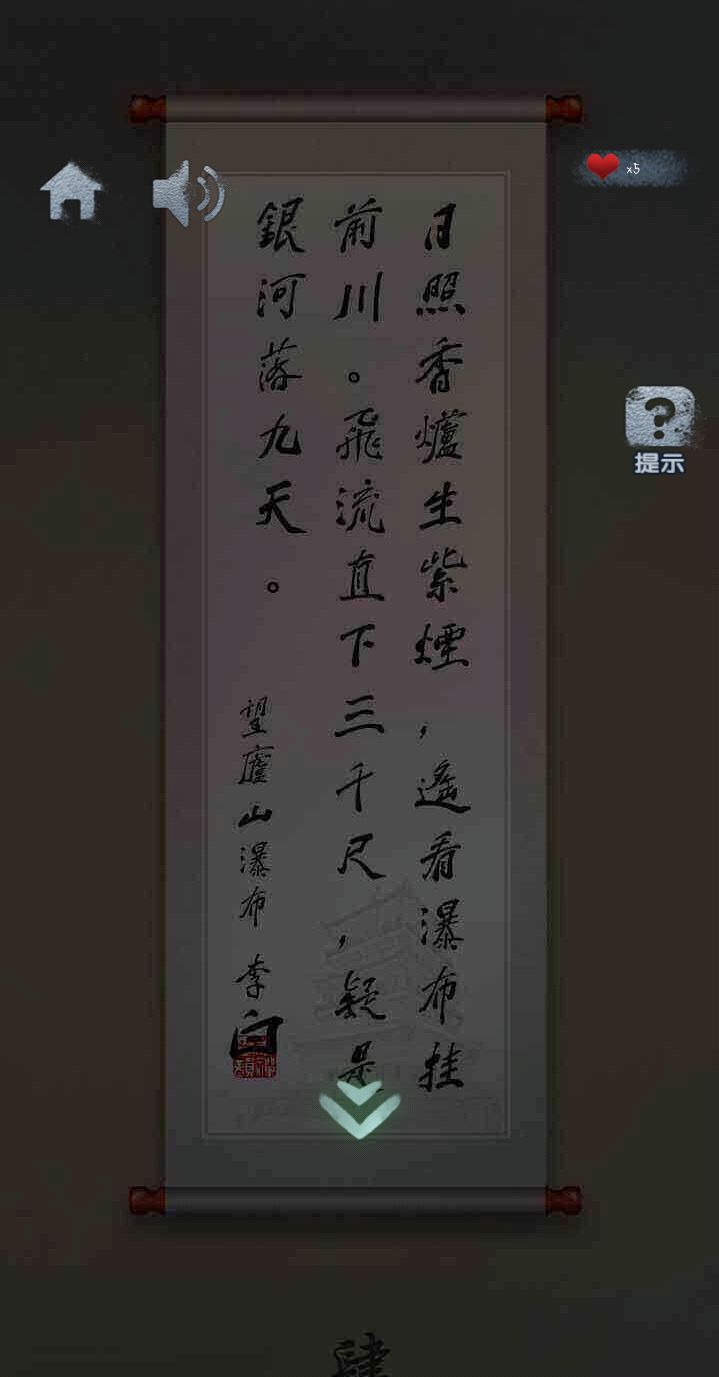 日照香爐生紫煙，遙看瀑布挂
前川。飛流直下三千尺，疑是
銀河落九天。
望廬山瀑布 李白
x5
提示
肆